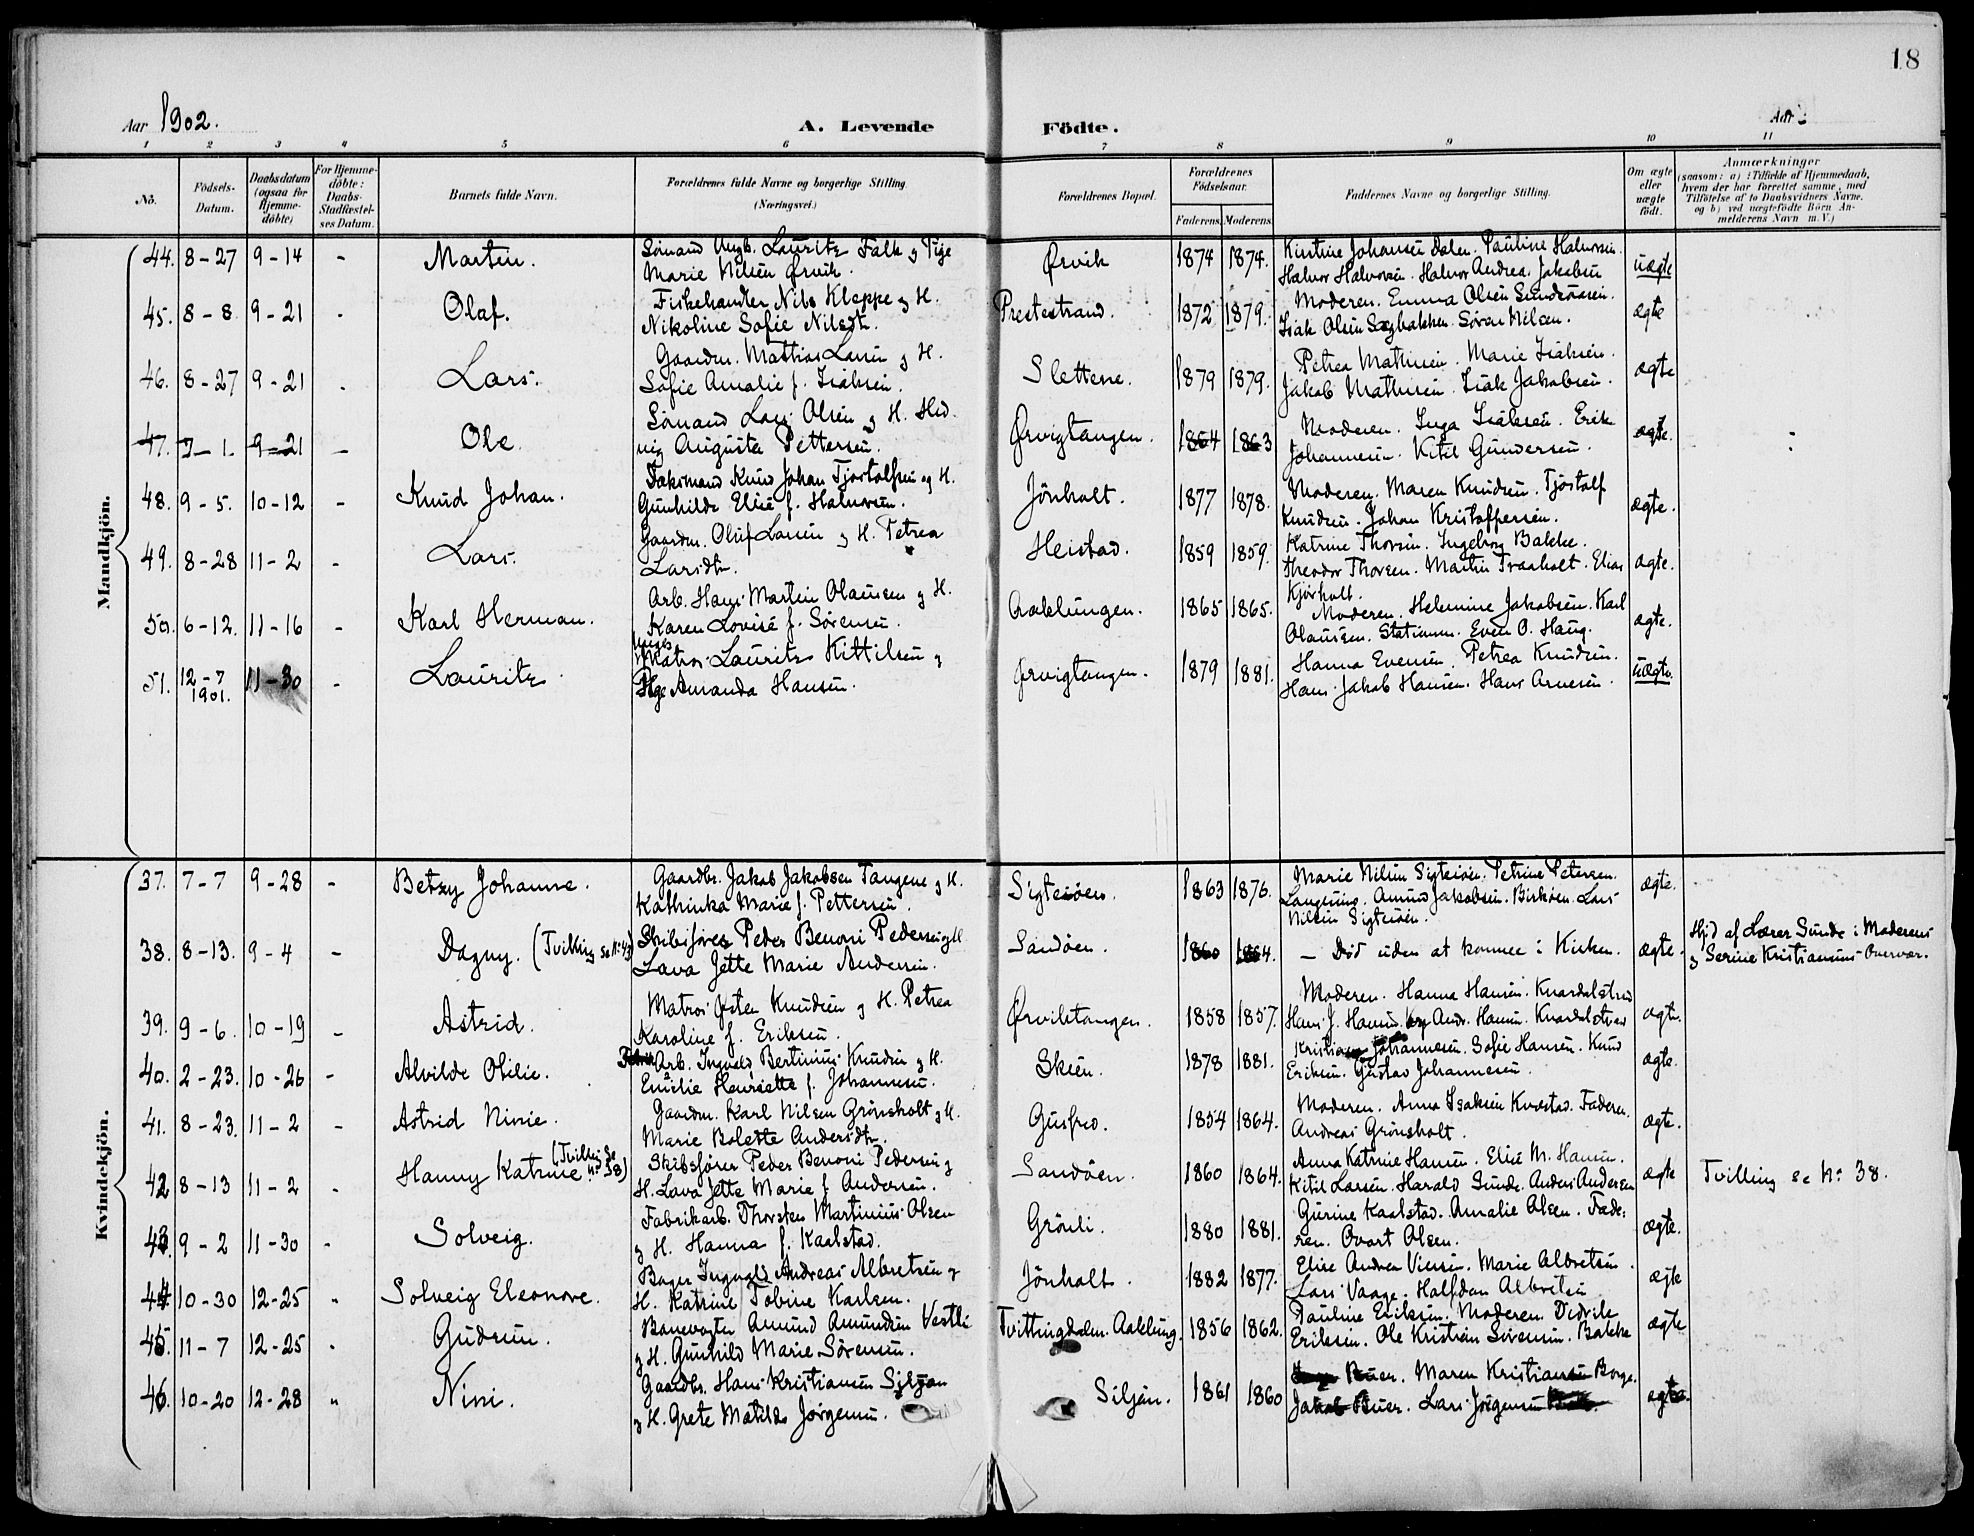 18
Aar 1902.
A. Levende Födte.
Aar
1 2 3 4 5 6 7 8 9 10 11
No.
Födsels-Datum.
Daabsdatum (ogsaa for Hjemme-döbte)
For Hjemme-döbte: Daabs-Stadfæstel-ses Datum.
Barnets fulde Navn.
Forældrenes fulde Navne og borgerlige Stilling. (Næringsvei.)
Forældrenes Bopæl.
Forældrenes Födselsaar.
Faderens. Moderens.
Faddernes Navne og borgerlige Stilling.
Om ægte eller uægte født.
Anmærkninger
(saasom: a) i Tilfælde af Hjemmedaab, hvem der har forrettet samme, med Tilföielse af to Daabsvidners Navne, og b) ved uægtefödte Börn An-melderens Navn m. V.)
Mandkjön.
44. 8-27 9-14 - Martin. Sømand Ungk. Lauritz Falk & Pige
Marie Nilsen Ørvik. Ørvik 1874 1874. Kirstine Johansen Dalen. Pauline Halvorsen.
Halvor Halvorsen. Halvor Andrea Jakobsen uægte
45. 8-8. 9-21 - Olaf. Fiskehandler Nils Kleppe & H.
Nikoline Sofie Nilsdtr. Prestestrand. 1872 1879. Moderen. Emma Olsen
Isak Olsen Søren Nilsen. ægte
46. 8-27 9-21 - Lars. Gaardm. Mathias Larsen & H.
Sofie Amalie f. Isaksen. Slettene. 1879 1879. Petrea Mathisen. Marie Isaksen.
Jakob Mathisen. Isak Jakobsen. ægte
47. 7-1. 9-21 - Ole. Sømand Lars Olsen & H. Hed-
vig Augusta Pettersen. Ørvigtangen. 1864 1863 Moderen. Inga Isaksen. Erik
Johannesen. Kitil Gundersen. ægte.
48. 9-5. 10-12 - Knud Johan. Knud Johan Tjostolfsen og H.
Gunhilde Elise f. Halvorsen. Jönholt. 1877 1878. Moderen. Maren Knudsen. Tjostolf
Knudsen. Johan Kristoffersen. ægte.
49. 8-28 11-2 - Lars. Gaardm. Oluf Larsen & H. Petrea
Larsdtr. Heistad. 1859 1859. Katrine Thorsen. Ingeborg Bakke.
Theodor Thorsen. Martin Traaholt. Elias
Kjørholt. ægte.
50. 6-12. 11-16 - Karl Herman. Arb. Hans Martin Olausen & H.
Karen Lovise f. Sørensen. Aaklungen. 1865 1865. Moderen. Helmine Jakobsen. Karl
Olausen. Stationm. Even O. Haug. ægte.
51. 12-7 1901. 11-30 - Lauritz. Matros Lauritz Kittilsen &
Pige Amanda Hansen. Ørvigtangen. 1879 1881. Hanna Evensen. Petrea Knudsen.
Hans Jakob Hansen. Hans Arnesen. uægte.
Kvindekjön.
37. 7-7 9-28 - Betzy Johanne. Gaardbr. Jakob Jakobsen Tangene & H.
Kathinka Marie f. Pettersen. Sigtesøen. 1863 1876. Marie Nilsen Sigtesøen. Petrine Petersen
Langesund. Amund Jakobsen. Birkøen. Lars
Nilsen Sigtesøen. ægte.
38. 8-13. 9-4 - Dagny. (Tvilling se No 42) Skibsfører Peder Benoni Pedersen & H.
Lava Jette Marie Andersen. Sandøen. 1860 1864. - Død uden at komme i Kirken. ægte. Hjd af Lærer Sunde i Moderens
& Serine Kristiansens Overvær.
39. 9-6. 10-19 - Astrid. Matros Peter Knudsen & H. Petrea
Karoline f. Eriksen. Ørvikstangen. 1858 1857. Moderen. Hanna Hansen. Knardalstrand
Hans J. Hansen. Andr. Hansen. Knardalstrand ægte.
40. 2-23. 10-26 - Alvilde Otilie. Arb. Ingvald Bertinius Knudsen & H.
Emilie Henriette f. Johannesen. Skien. 1878 1881. Kristiane Johannesen. Sofie Hansen. Knud
Eriksen. Gustav Johannesen. ægte.
41. 8-23. 11-2 - Astrid Ninie. Gaardm. Karl Nilsen Grönsholt & H.
Marie Bolette Andersdtr. Gusfred. 1854 1864. Moderen. Anna Isaksen Kvastad. Faderen.
Andreas Grönsholt. ægte.
42 8-13 11-2 - Hanny Katrine (Tvilling se No 38) Skibsfører Peder Benoni Pedersen &
H. Lava Jette Marie f. Andersen. Sandøen. 1860 1864. Anna Katrine Hansen. Elise M. Hansen.
Kitil Larsen. Harald Sunde. Anders Andersen ægte Tvilling se No 38.
43. 9-2 11-30 - Solveig. Fabrikarb. Thorsten Martinius Olsen
& H. Hanna f. Kaalstad. Grönli. 1880 1881. Gurine Kaalstad. Amalie Olsen. Fade-
ren. Ovart Olsen. ægte.
44 10-30 12-25 " Solveig Eleonore. Bager Ingvald Andreas Albretsen &
H. Katrine Tobine Karlsen. Jönholt. 1882 1877. Elise Andrea Marie Albretsen.
Lars Vaage. Halfdan Albretsen ægte
45. 11-7 12-25 " Gudrun. Banevogter Amund Amundsen Vestli
& H. Gunhild Marie Sørensen. Tvittingdalen. Aaklung. 1856 1862. Pauline Eriksen. Moderen. Didrik
Eriksen. Ole Kristian Sørensen. Bakke ægte
46. 10-20 12-28 " Nini. Gaardbr. Hans Kristiansen Siljan
& H. Grete Matilde Jørgensen. Siljan. 1861 1860 Buer. Maren Kristiansen Borge.
Jakob Buer. Lars Jörgensen ægte.